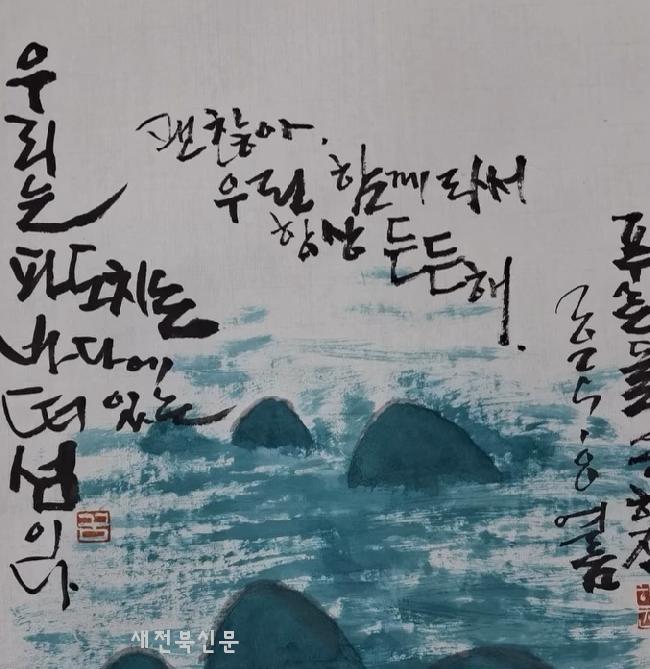 우리는
파도치는
바다에
떠 있는
섬
이다.
괜찮아.
우린 함께라서
항상 든든해.
여름
새전북신문